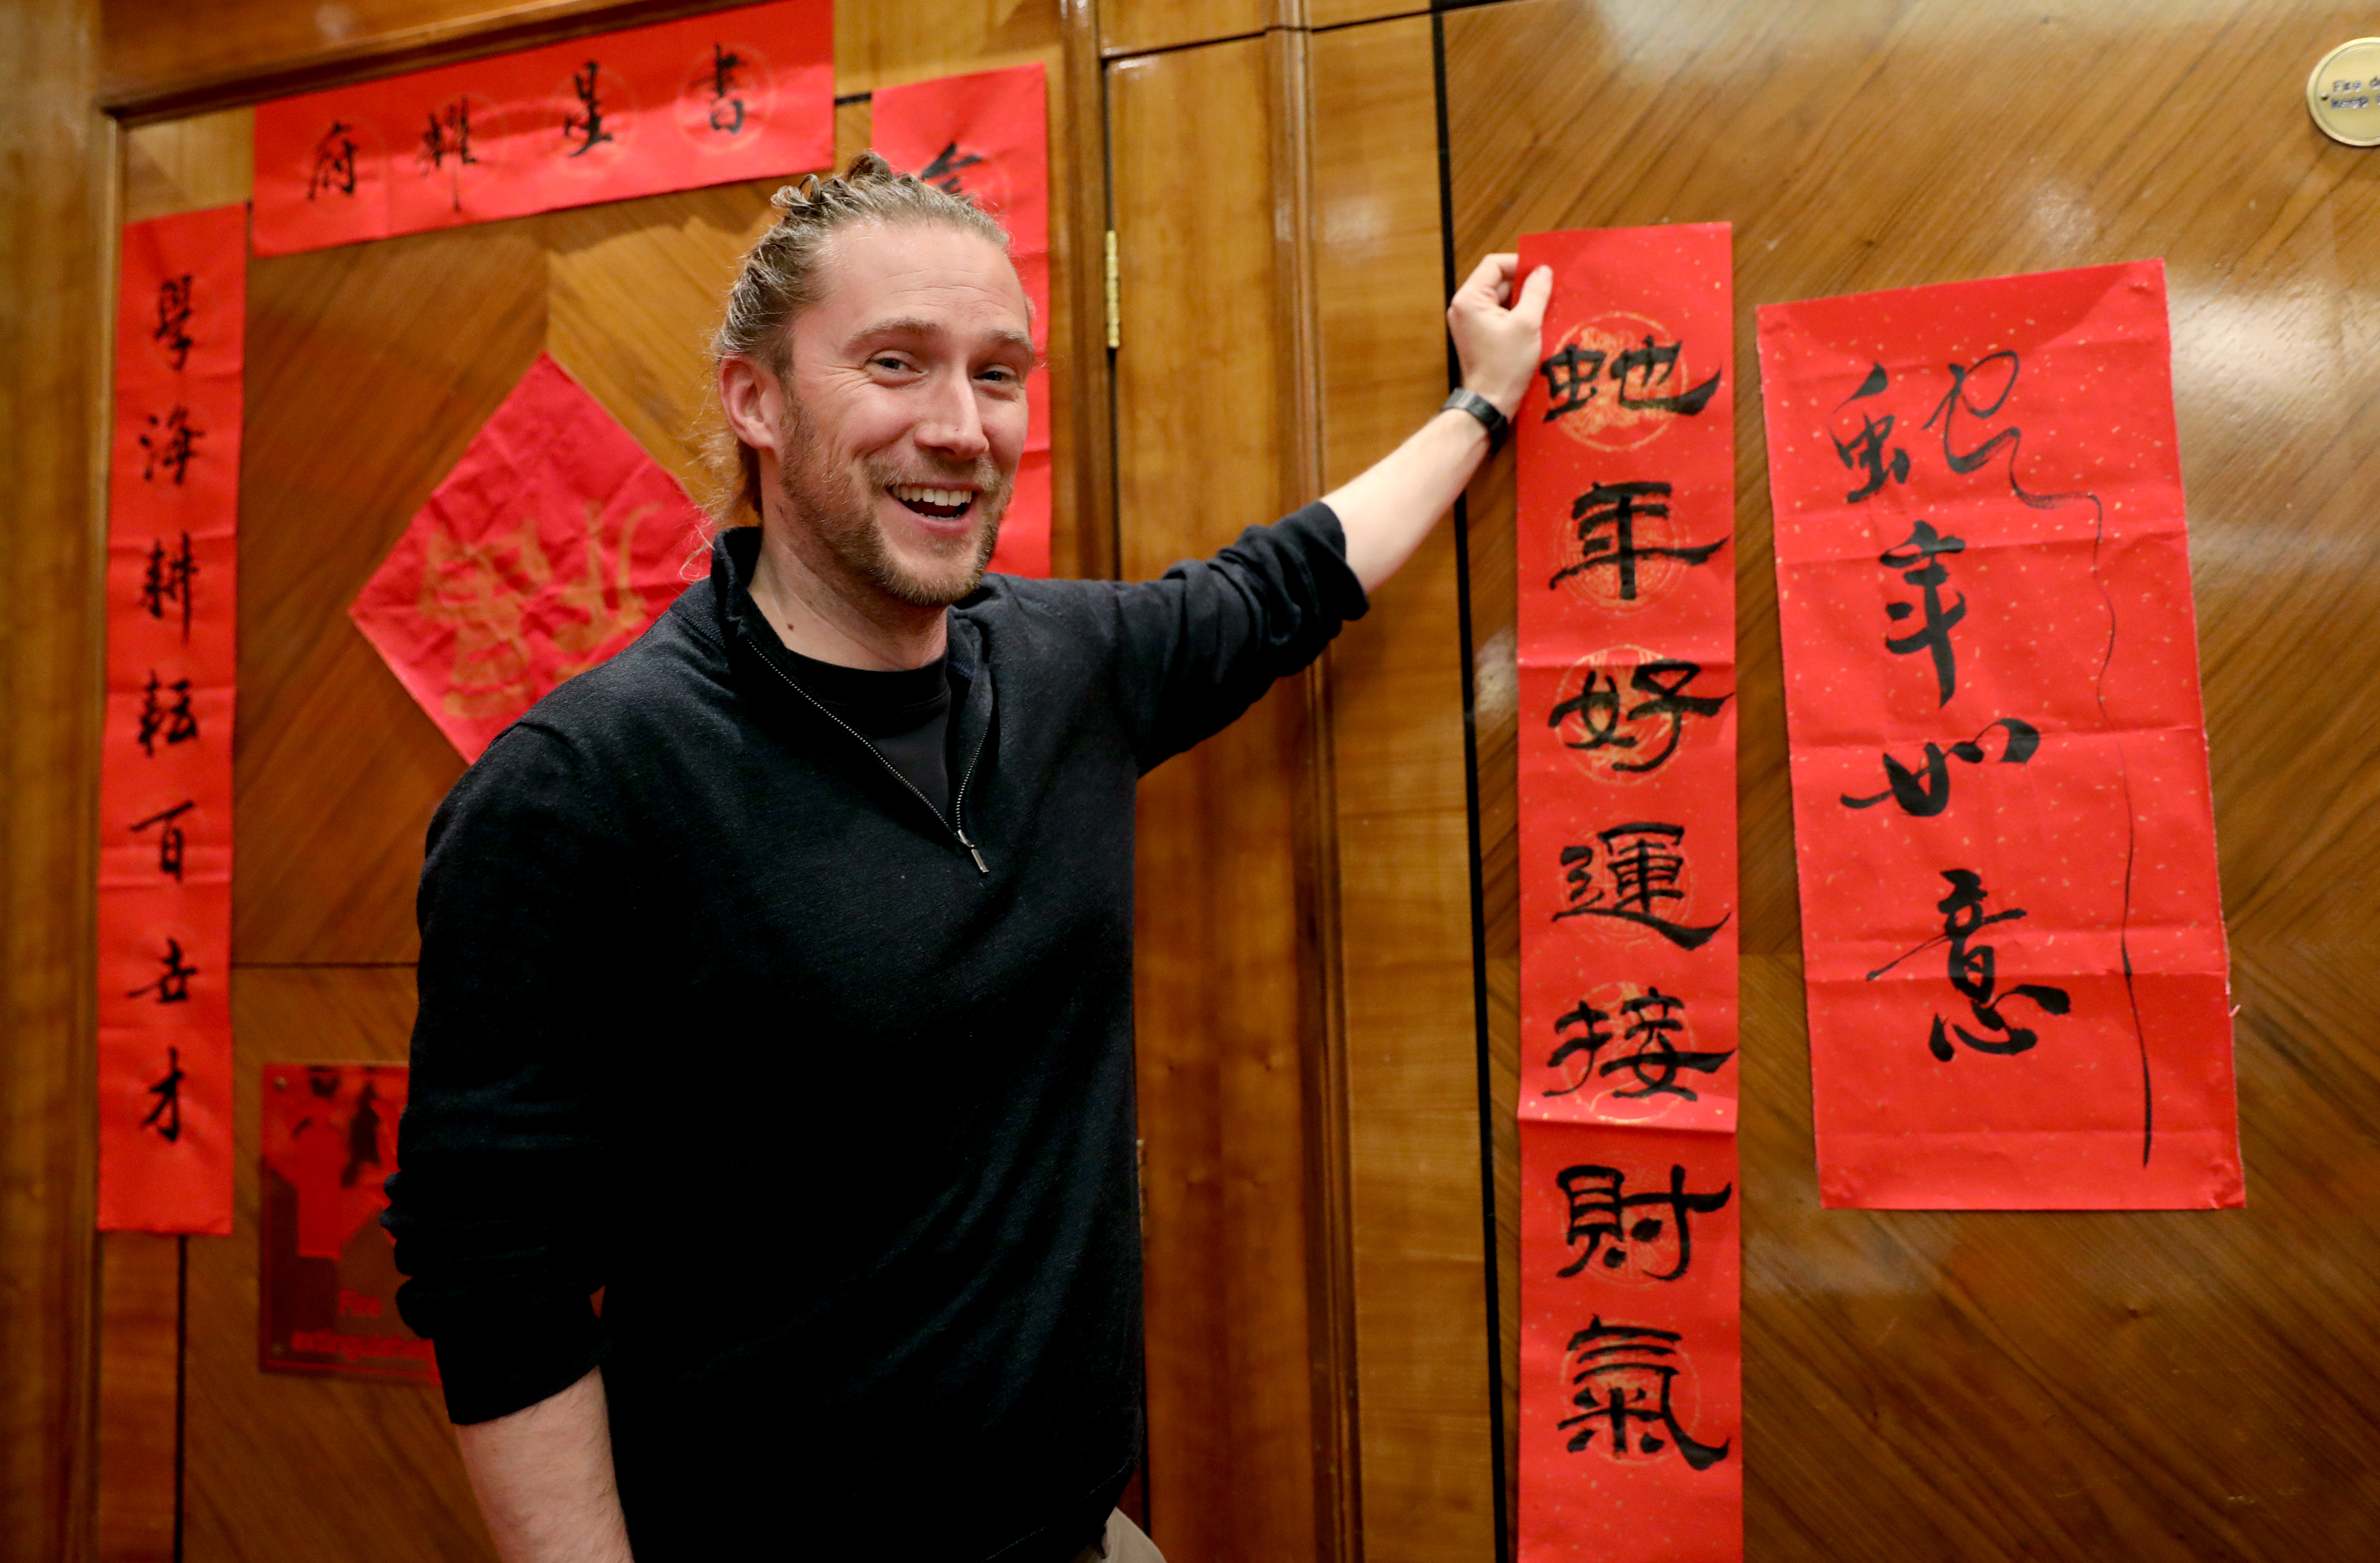 書星耀府
學海耕耘百世才
蛇年好運接財氣
蛇年如意
Fire
keep
Fire